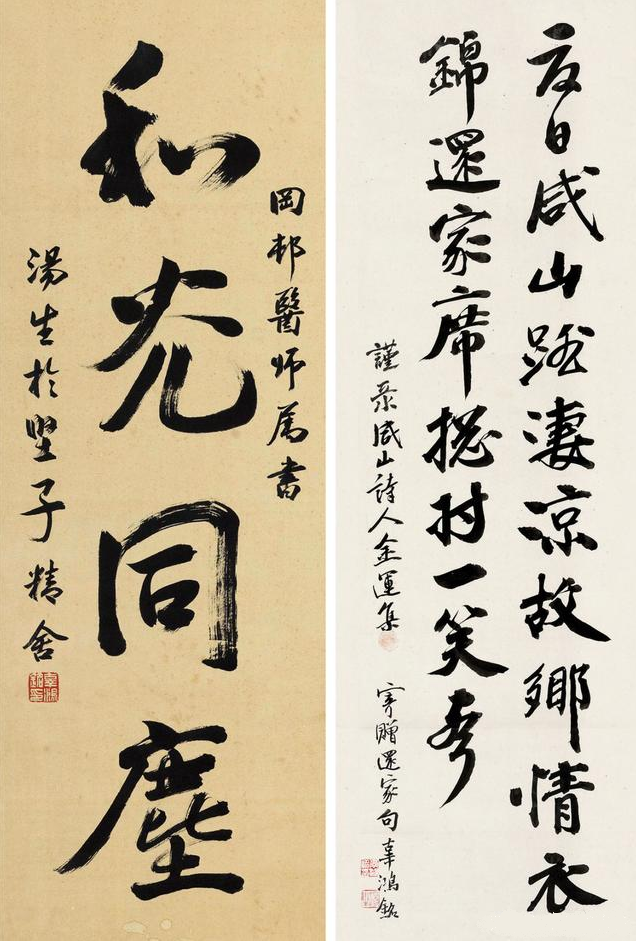 日咸山路凄凉故鄉情衣
錦還家席一笑
謹录咸山詩人金運集
寄贈還家句辜鴻銘
岡邨醫师属書
和光同塵
湯生於堅子精舍